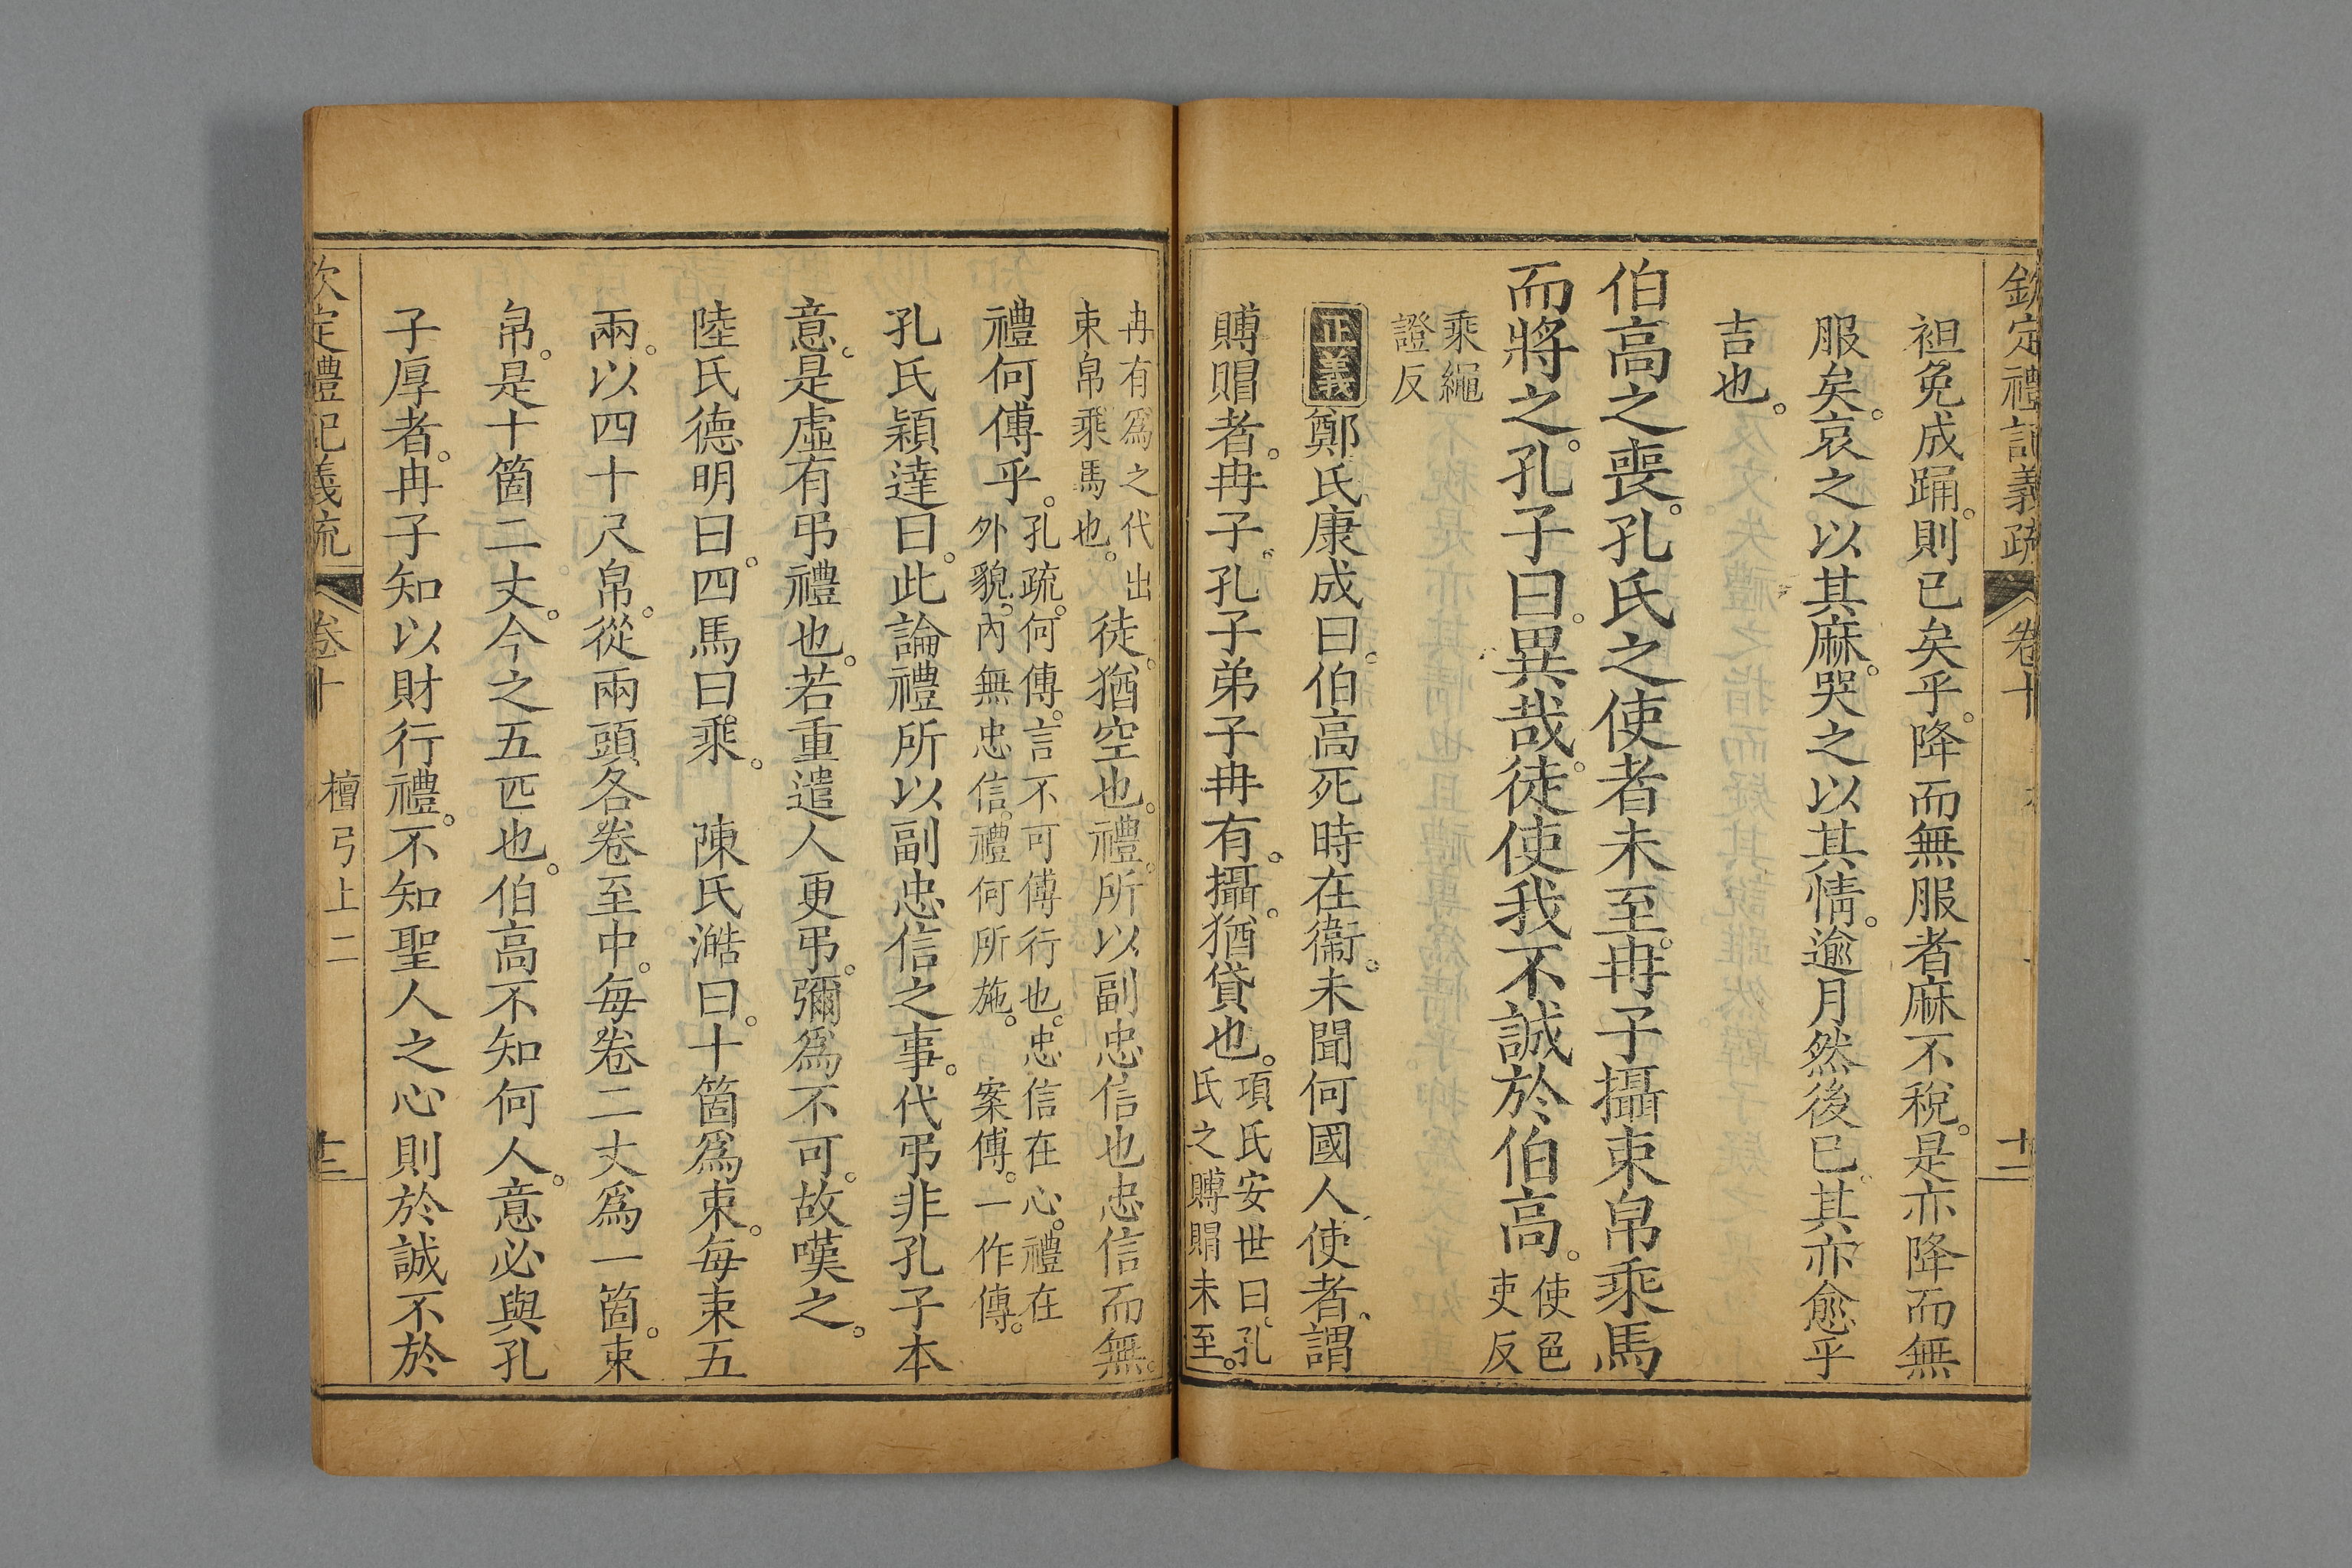 欽定禮記義疏 卷十 十二
袒免成踊。則已矣乎。降而無服者麻不稅。是亦降而無
服矣。哀之以其麻。哭之以其情。逾月然後已。其亦愈乎
吉也。
伯高之喪。孔氏之使者未至。冉子攝束帛乘馬
而將之。孔子曰。異哉。徒使我不誠於伯高。使色
吏反
乘繩
證反
正義鄭氏康成曰。伯高死時在衞。未聞何國人使者。謂
賻賵者。冉子。孔子弟子冉有。攝。猶貸也。項氏安世曰。孔
氏之賻賵未至。
冉有爲之代出
束帛乘馬也。徒。猶空也。禮。所以副忠信也忠信而無。
禮何傳乎。孔疏。何傳。言不可傳行也。忠信在心。禮在
外貌。內無忠信。禮何所施。 案傅。一作傳。
孔氏穎達曰。此論禮所以副忠信之事。代弔非孔子本
意。是虛有弔禮也。若重遣人更弔。彌爲不可。故嘆之。
陸氏德明曰。四馬曰乘。 陳氏澔曰。十箇爲束。每束五
兩。以四十尺帛。從兩頭各卷至中。每卷二丈爲一箇。束
帛。是十箇二丈。今之五匹也。伯高不知何人。意必與孔
子厚者。冉子知以財行禮。不知聖人之心則於誠不於
欽定禮記義疏 卷十 檀弓上二 十三